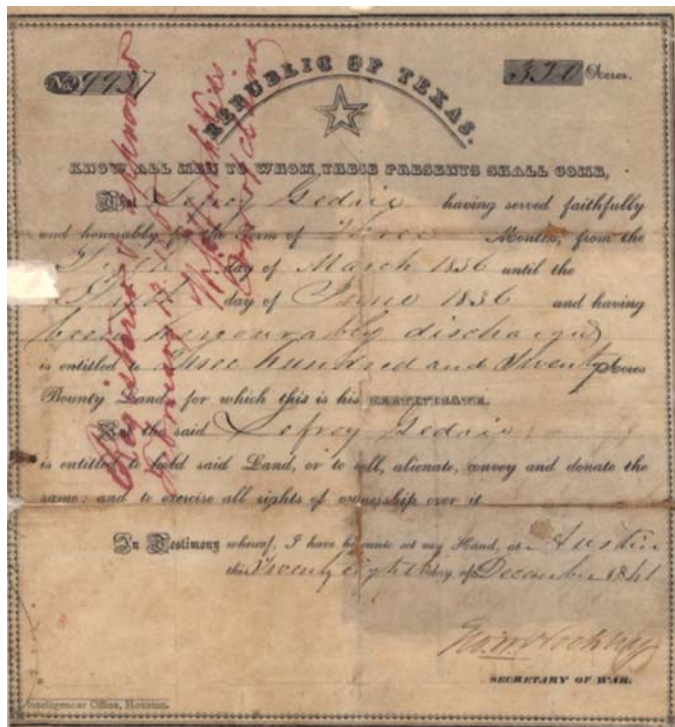 No. 9937
320 Acres.
REPUBLIC OF TEXAS.
KNOW ALL MEN TO WHOM THESE PRESENTS SHALL COME,
That Lefroy Gedrie having served faithfully
and honorably for the term of Three Months, from the
day of March 1836 until the
day of June 1836 and having
been honourably discharged
is entitled to Three hundred and Twenty Acres
Bounty Land, for which this is his CERTIFICATE.
And the said Lefroy Gedrie
is entitled to hold said Land, or to sell, alienate, convey and donate the
same; and to exercise all rights of ownership over it.
In Testimony whereof, I have hereunto set my Hand, at Austin
this Twenty eighth day of December 1841
SECRETARY OF WAR.
Intelligencer Office, Houston.
Registered & approved